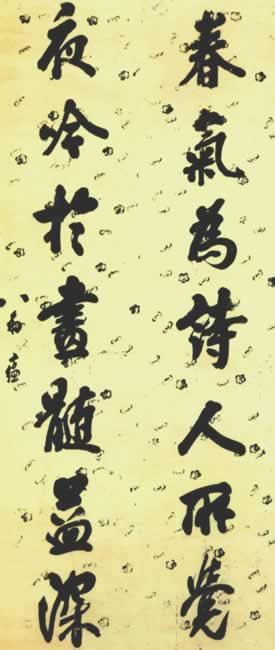 春氣為詩人所覺
夜吟於畫髓益深